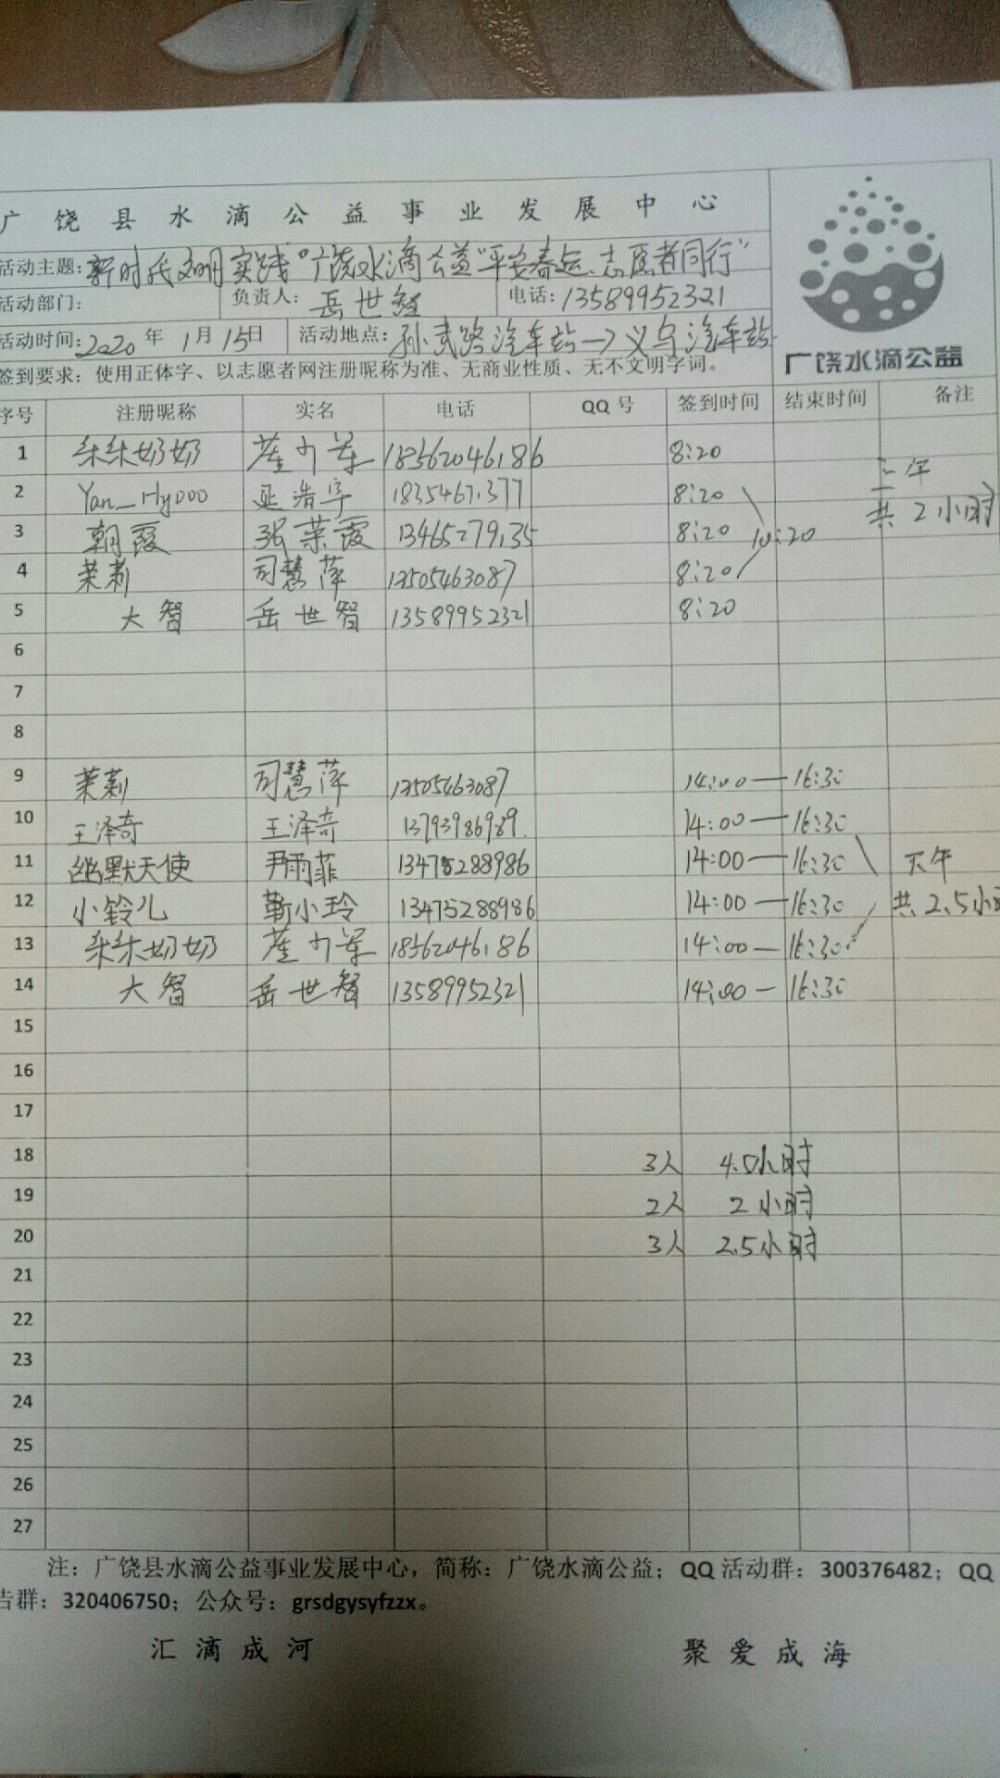 广饶县水滴公益事业发展中心
活动主题：新时代文明实践"广饶水滴公益"平安春运、志愿者同行"
活动部门： 负责人：岳世智 电话：13589952321
活动时间：2020年1月15日 活动地点：孙武路汽车站→义乌汽车站
广饶水滴公益
签到要求：使用正体字、以志愿者网注册昵称为准、无商业性质、无不文明字词。
序号 注册昵称 实名 电话 QQ号 签到时间 结束时间 备注
1 朵朵奶奶 18562046186 8:20
2 Yan_Hy000 浩宇 8:20
上午
共2小时
3 朝霞 张荣霞 8:20 10:20
4 茉莉 司慧萍 13505463087 8:20
5 大智 岳世智 13589952321 8:20
6
7
8
9 茉莉 司慧萍 13505463087 14:00—16:30
10 王泽奇 王泽奇 13793986989 14:00—16:30
11 幽默天使 尹雨菲 13475288986 14:00—16:30 下午
12 小铃儿 靳小玲 13475288986 14:00—16:30 共2.5小时
13 朵朵奶奶 18562046186 14:00—16:30
14 大智 岳世智 13589952321 14:00—16:30
15
16
17
18 3人 4.5小时
19 2人 2小时
20 3人 2.5小时
21
22
23
24
25
26
27
注：广饶县水滴公益事业发展中心，简称：广饶水滴公益；QQ活动群：300376482；QQ
告群：320406750；公众号：grsdgysyfzzx。
汇滴成河 聚爱成海